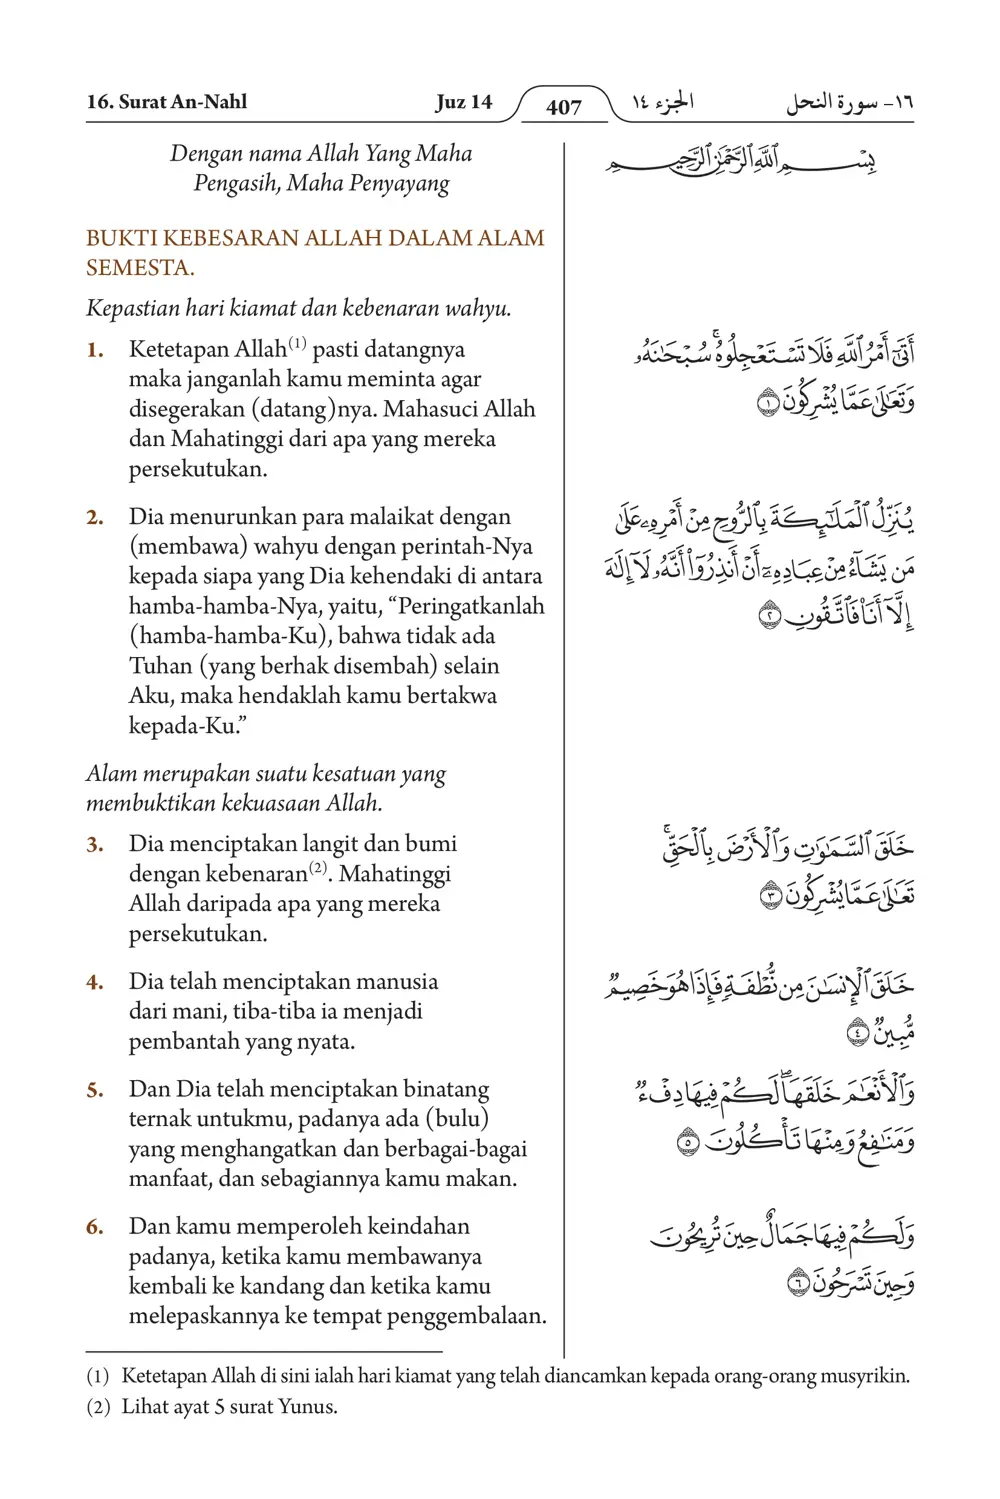 16. Surat An-Nahl Juz 14 407 الجزء ١٤ ١٦- سورة النحل
Dengan nama Allah Yang Maha
Pengasih, Maha Penyayang
BUKTI KEBESARAN ALLAH DALAM ALAM
SEMESTA.
Kepastian hari kiamat dan kebenaran wahyu.
1. Ketetapan Allah(1) pasti datangnya
maka janganlah kamu meminta agar
disegerakan (datang)nya. Mahasuci Allah
dan Mahatinggi dari apa yang mereka
persekutukan.
2. Dia menurunkan para malaikat dengan
(membawa) wahyu dengan perintah-Nya
kepada siapa yang Dia kehendaki di antara
hamba-hamba-Nya, yaitu, “Peringatkanlah
(hamba-hamba-Ku), bahwa tidak ada
Tuhan (yang berhak disembah) selain
Aku, maka hendaklah kamu bertakwa
kepada-Ku.”
Alam merupakan suatu kesatuan yang
membuktikan kekuasaan Allah.
3. Dia menciptakan langit dan bumi
dengan kebenaran(2). Mahatinggi
Allah daripada apa yang mereka
persekutukan.
4. Dia telah menciptakan manusia
dari mani, tiba-tiba ia menjadi
pembantah yang nyata.
5. Dan Dia telah menciptakan binatang
ternak untukmu, padanya ada (bulu)
yang menghangatkan dan berbagai-bagai
manfaat, dan sebagiannya kamu makan.
6. Dan kamu memperoleh keindahan
padanya, ketika kamu membawanya
kembali ke kandang dan ketika kamu
melepaskannya ke tempat penggembalaan.
بِسْمِ ٱللَّهِ ٱلرَّحْمَٰنِ ٱلرَّحِيمِ
أَتَىٰٓ أَمْرُ ٱللَّهِ فَلَا تَسْتَعْجِلُوهُۚ سُبْحَٰنَهُۥ
وَتَعَٰلَىٰ عَمَّا يُشْرِكُونَ ١
يُنَزِّلُ ٱلْمَلَٰٓئِكَةَ بِٱلرُّوحِ مِنْ أَمْرِهِۦ عَلَىٰ
مَن يَشَآءُ مِنْ عِبَادِهِۦٓ أَنْ أَنذِرُوٓا۟ أَنَّهُۥ لَآ إِلَٰهَ
إِلَّآ أَنَا۠ فَٱتَّقُونِ ٢
خَلَقَ ٱلسَّمَٰوَٰتِ وَٱلْأَرْضَ بِٱلْحَقِّۚ
تَعَٰلَىٰ عَمَّا يُشْرِكُونَ ٣
خَلَقَ ٱلْإِنسَٰنَ مِن نُّطْفَةٍ فَإِذَا هُوَ خَصِيمٌ
مُّبِينٌ ٤
وَٱلْأَنْعَٰمَ خَلَقَهَاۖ لَكُمْ فِيهَا دِفْءٌ
وَمَنَٰفِعُ وَمِنْهَا تَأْكُلُونَ ٥
وَلَكُمْ فِيهَا جَمَالٌ حِينَ تُرِيحُونَ
وَحِينَ تَسْرَحُونَ ٦
(1) Ketetapan Allah di sini ialah hari kiamat yang telah diancamkan kepada orang-orang musyrikin.
(2) Lihat ayat 5 surat Yunus.